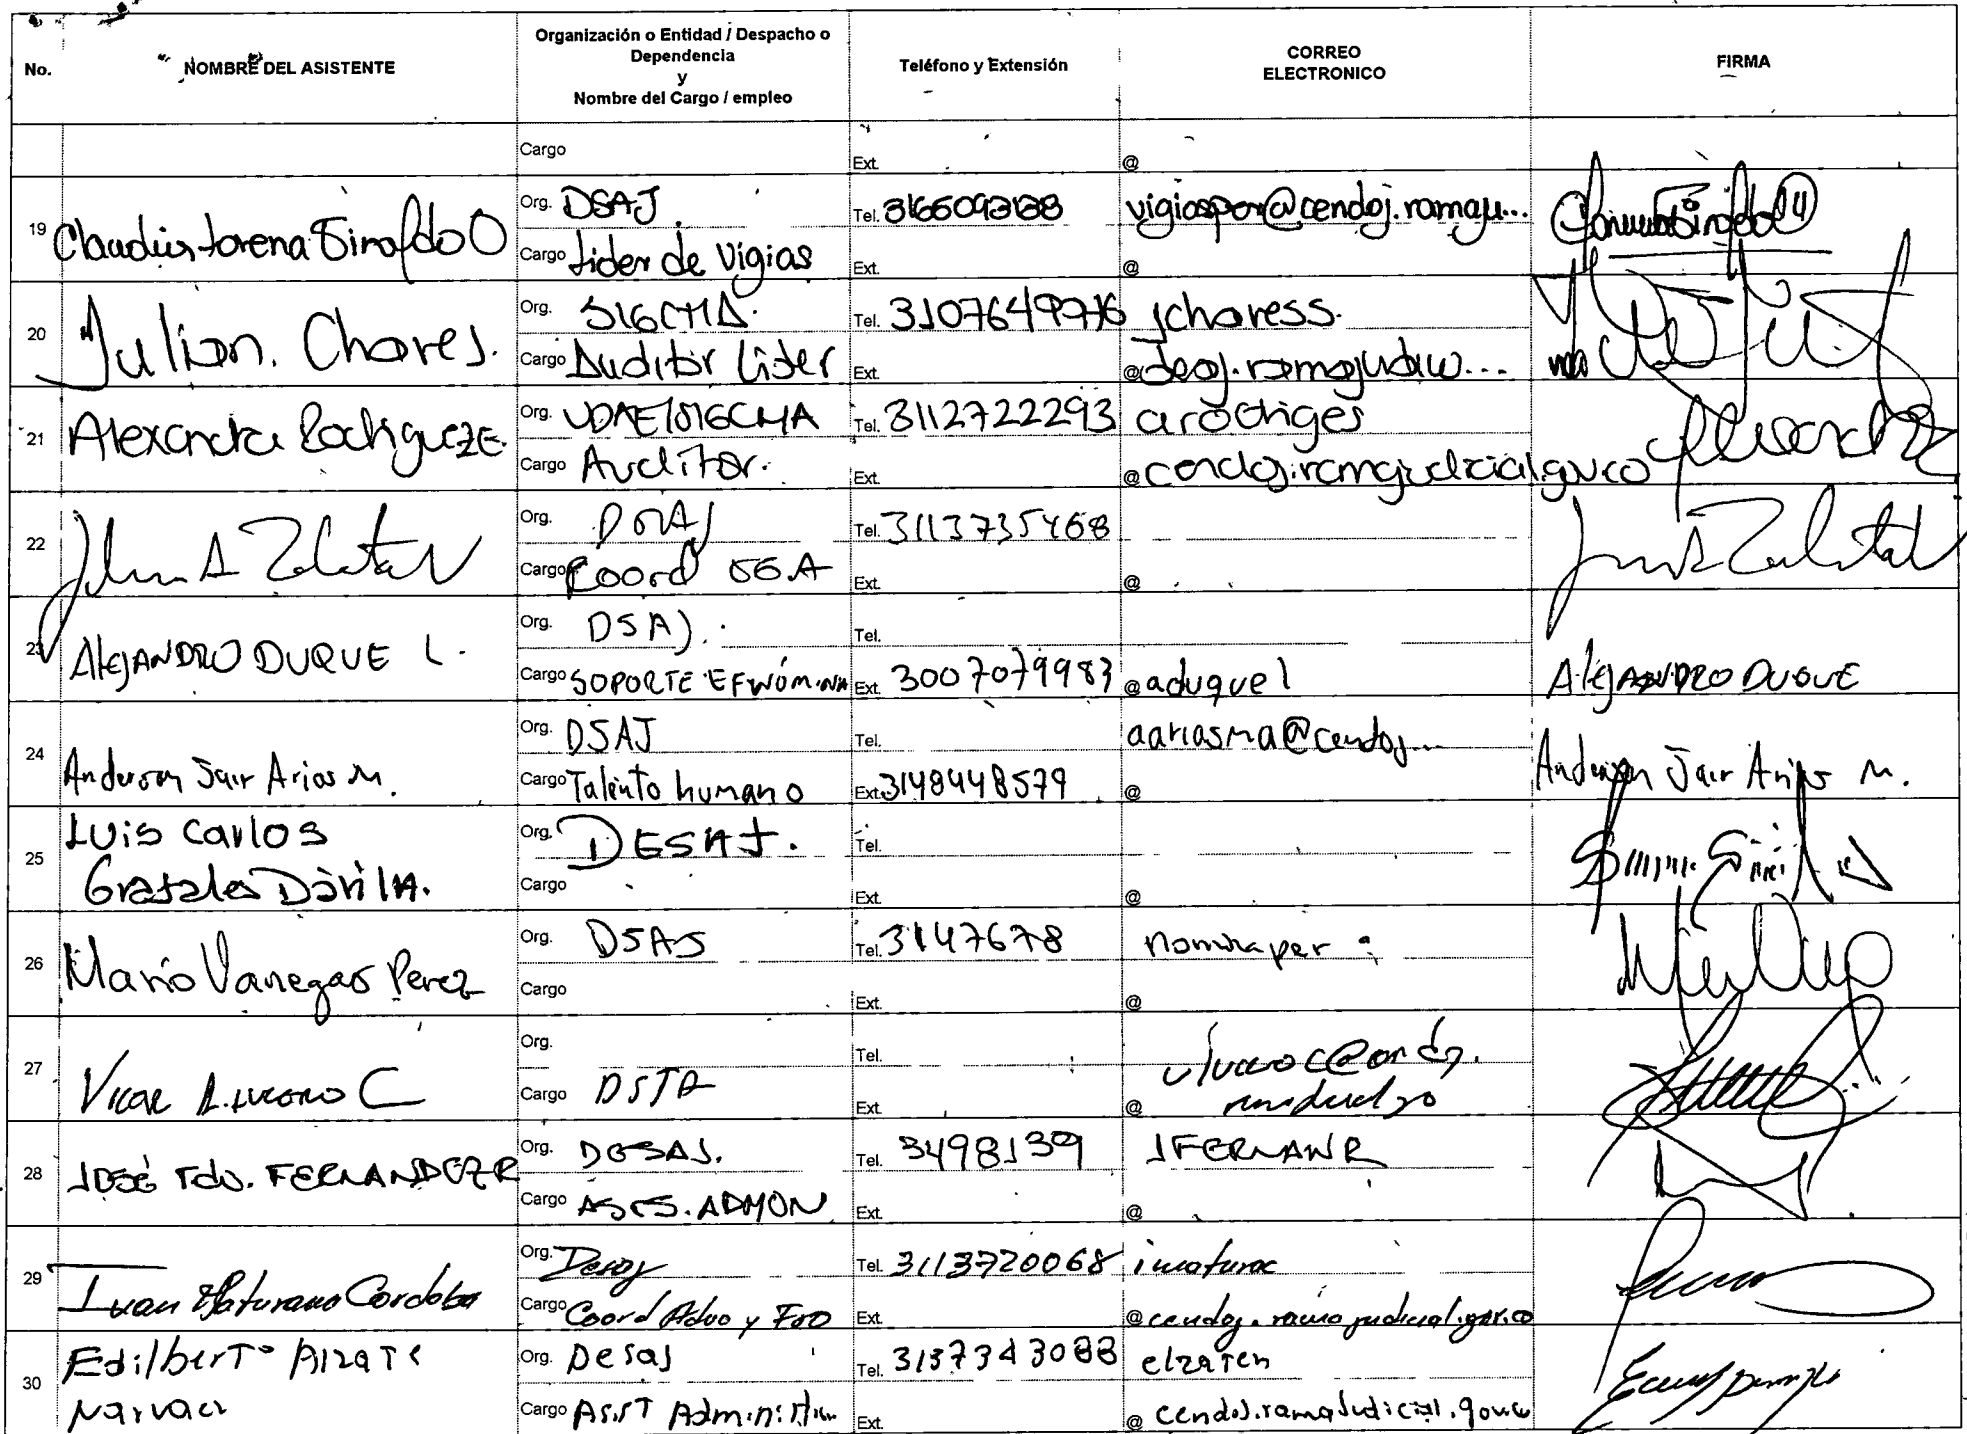 No.
NOMBRE DEL ASISTENTE
Organización o Entidad / Despacho o
Dependencia
y
Nombre del Cargo / empleo
Teléfono y Extensión
CORREO
ELECTRONICO
FIRMA
Cargo
Ext.
@
19
Claudia Lorena Giraldo O
Org. DSAJ
Cargo Lider de Vigias
Tel.
Ext.
vigiasper@cendoj.ramaju...
@
20
Julian. Chaves.
Org. SIGCMA.
Cargo Auditor Lider
Tel. 3107649976
Ext.
jchavess.
@deaj.ramajudic...
21
Alexandra Rodriguez E.
Org. UDAE/SIGCMA
Cargo Auditor.
Tel. 3112722293
Ext.
arodriges
@cendoj.ramajudicial.gov.co
22
Org. DSAJ
Cargo Coord
Tel. 3113735468
Ext.
@
23
ALEJANDRO DUQUE L.
Org. DSAJ.
Cargo SOPORTE
Tel.
Ext. 3007079983
@aduquel
ALEJANDRO DUQUE
24
Anderson Jair Arias M.
Org. DSAJ
Cargo Talento humano
Tel.
Ext. 3148448579
aariasma@cendoj...
@
Anderson Jair Arias M.
25
Luis Carlos
Grajales Dávila.
Org. DESAJ.
Cargo
Tel.
Ext.
@
26
Mario Vanegas Perez
Org. DSAJ
Cargo
Tel. 3147678
Ext.
nominaper
@
27
C
Org.
Cargo
Tel.
Ext.
@
28
JOSÉ Fdo. FERNANDEZ R
Org. DESAJ.
Cargo ASES. ADMON
Tel. 3498139
Ext.
JFERNANR
@
29
Ivan Maturana Cordoba
Org. Desaj
Cargo Coord Advo y Fro
Tel. 3113720068
Ext.
imaturac
@cendoj.ramajudicial.gov.co
30
Edilberto Alzate
Narvaez
Org. Desaj
Cargo Asist
Tel. 3137343088
Ext.
elzaten
@cendoj.ramaJudicial.gov.co